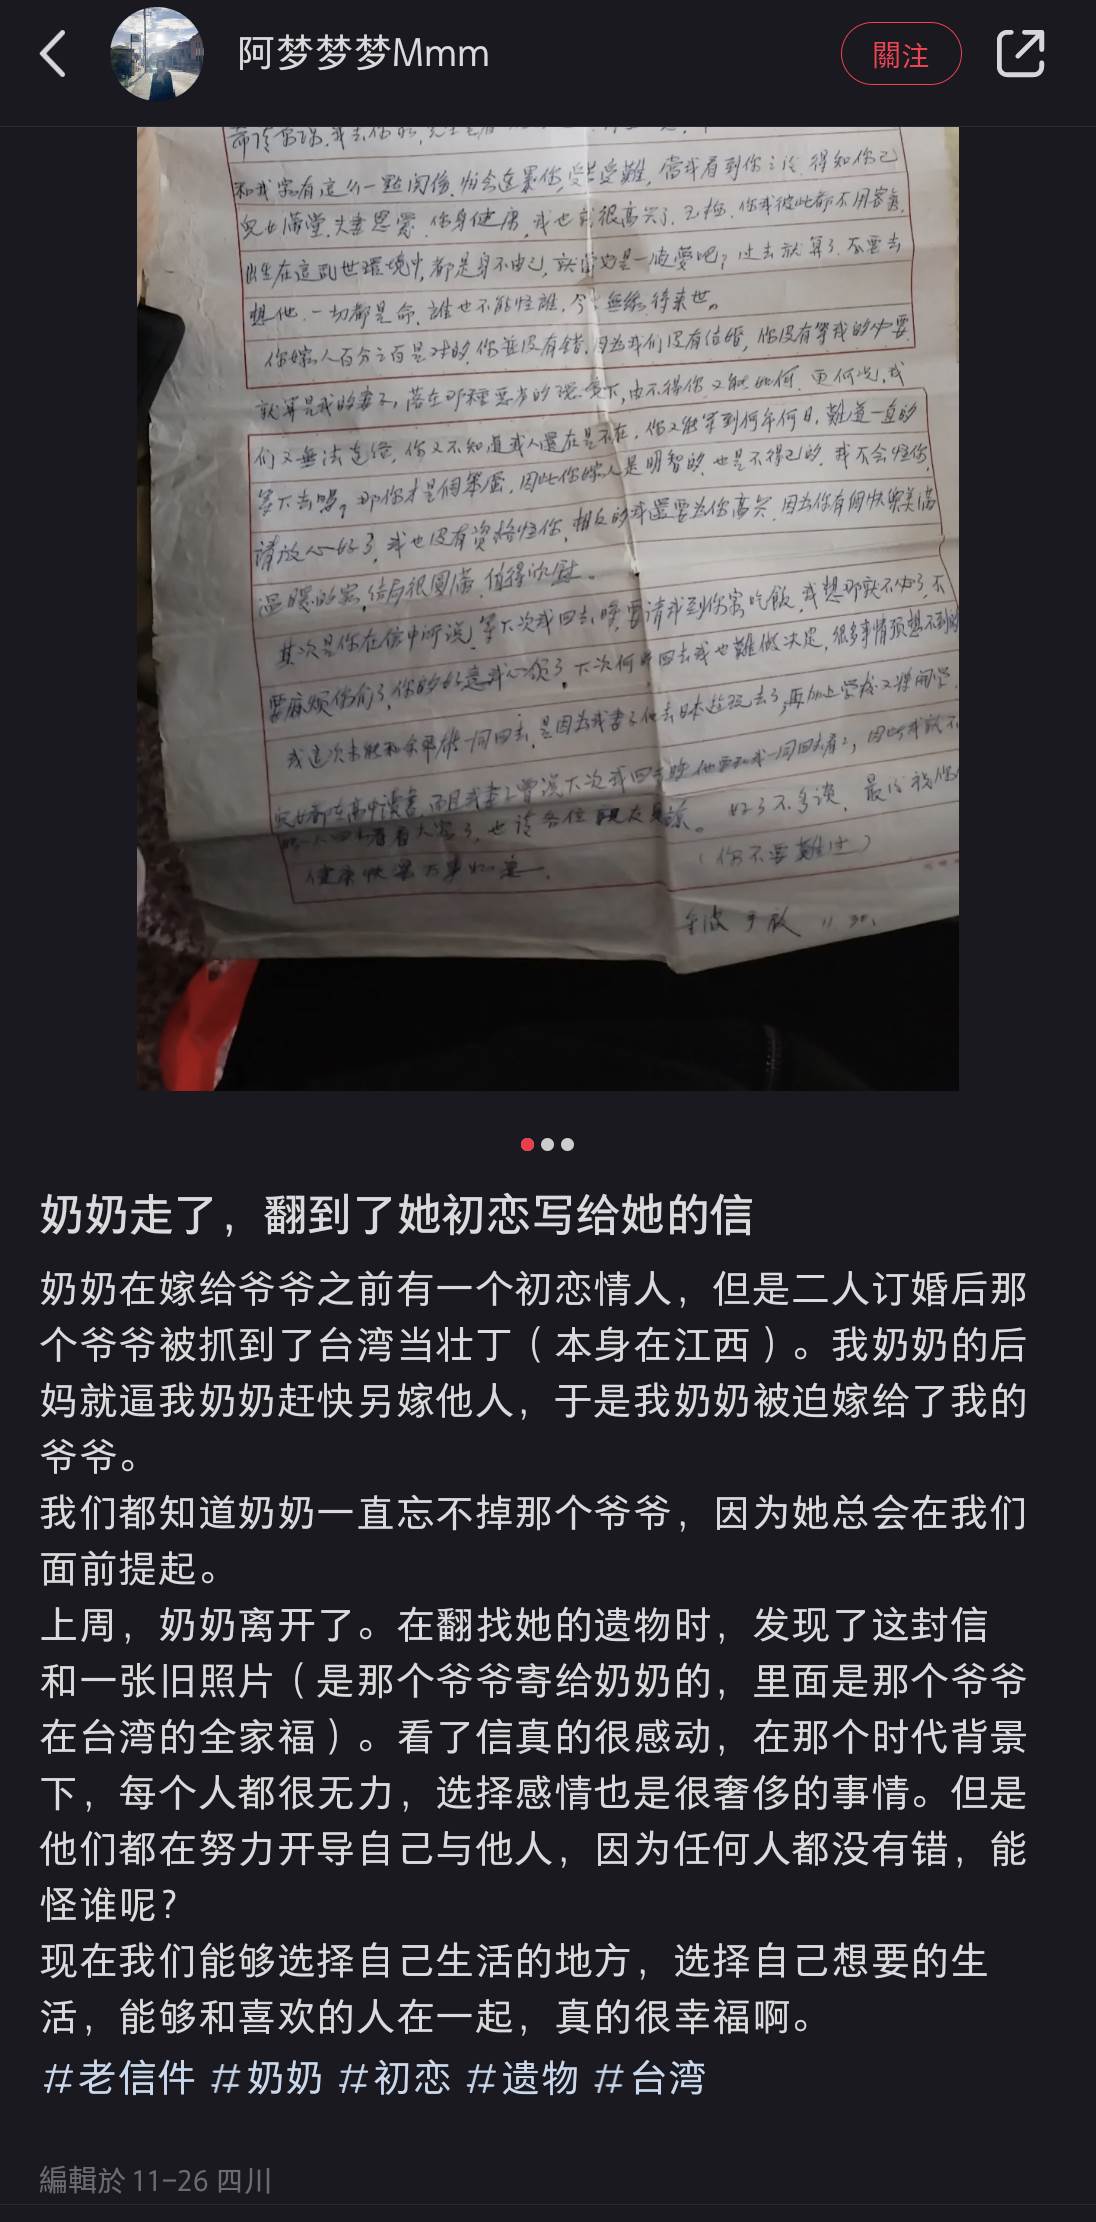 阿梦梦梦Mmm
關注
和我家有這么一點関係,
受苦受難,當我看到你
得知你已
兒女滿堂,夫妻恩愛,你身健康,我也就很高兴了
你我彼此都不用客氣,
出生在這亂世環境中,都是身不由己,就當也是一
吧,过去就算了,不要去
想他,一切都是命,誰也不能怪誰,今
無缘,待来世。
你嫁人百分之百是对的,你並没有错,因为我们没有结婚,你没有等我的必要,
就算是我的妻子,落在那種
的
下,由不得你又能如何,更何况,我
们又無法连络,你又不知道我人還在是不在,你又能等到何年何月,難道一直的
等下去嗎,那你才是個笨蛋,因此你嫁人是明智的,也是不得已的,我不会怪你,
請放心好了,我也没有資格怪你,相反的我還要为你高兴,因为你有個快樂美满
温暖的家,结局很圆满,值得欣慰。
其次是你在信中所说,等下次我回去時,要請我到你家吃飯,我想那就不必了,不
要麻烦你们了,你的好意我心领了,下次何時回去我也難做决定,很多事情預想不到的
我這次未能和
一同回去,是因为我妻子他去日本遊玩去了,再加上
兒女都在高中讀書,而且我妻子曾说下次我回去時他要和我一同回去看看,因此我就不
也請各位親友見諒。好了不多谈,最後祝你
健康快樂万事如意。
(你不要難过)
手啟 11.30.
奶奶走了，翻到了她初恋写给她的信
奶奶在嫁给爷爷之前有一个初恋情人，但是二人订婚后那
个爷爷被抓到了台湾当壮丁（本身在江西）。我奶奶的后
妈就逼我奶奶赶快另嫁他人，于是我奶奶被迫嫁给了我的
爷爷。
我们都知道奶奶一直忘不掉那个爷爷，因为她总会在我们
面前提起。
上周，奶奶离开了。在翻找她的遗物时，发现了这封信
和一张旧照片（是那个爷爷寄给奶奶的，里面是那个爷爷
在台湾的全家福）。看了信真的很感动，在那个时代背景
下，每个人都很无力，选择感情也是很奢侈的事情。但是
他们都在努力开导自己与他人，因为任何人都没有错，能
怪谁呢？
现在我们能够选择自己生活的地方，选择自己想要的生
活，能够和喜欢的人在一起，真的很幸福啊。
#老信件 #奶奶 #初恋 #遗物 #台湾
編輯於 11-26 四川